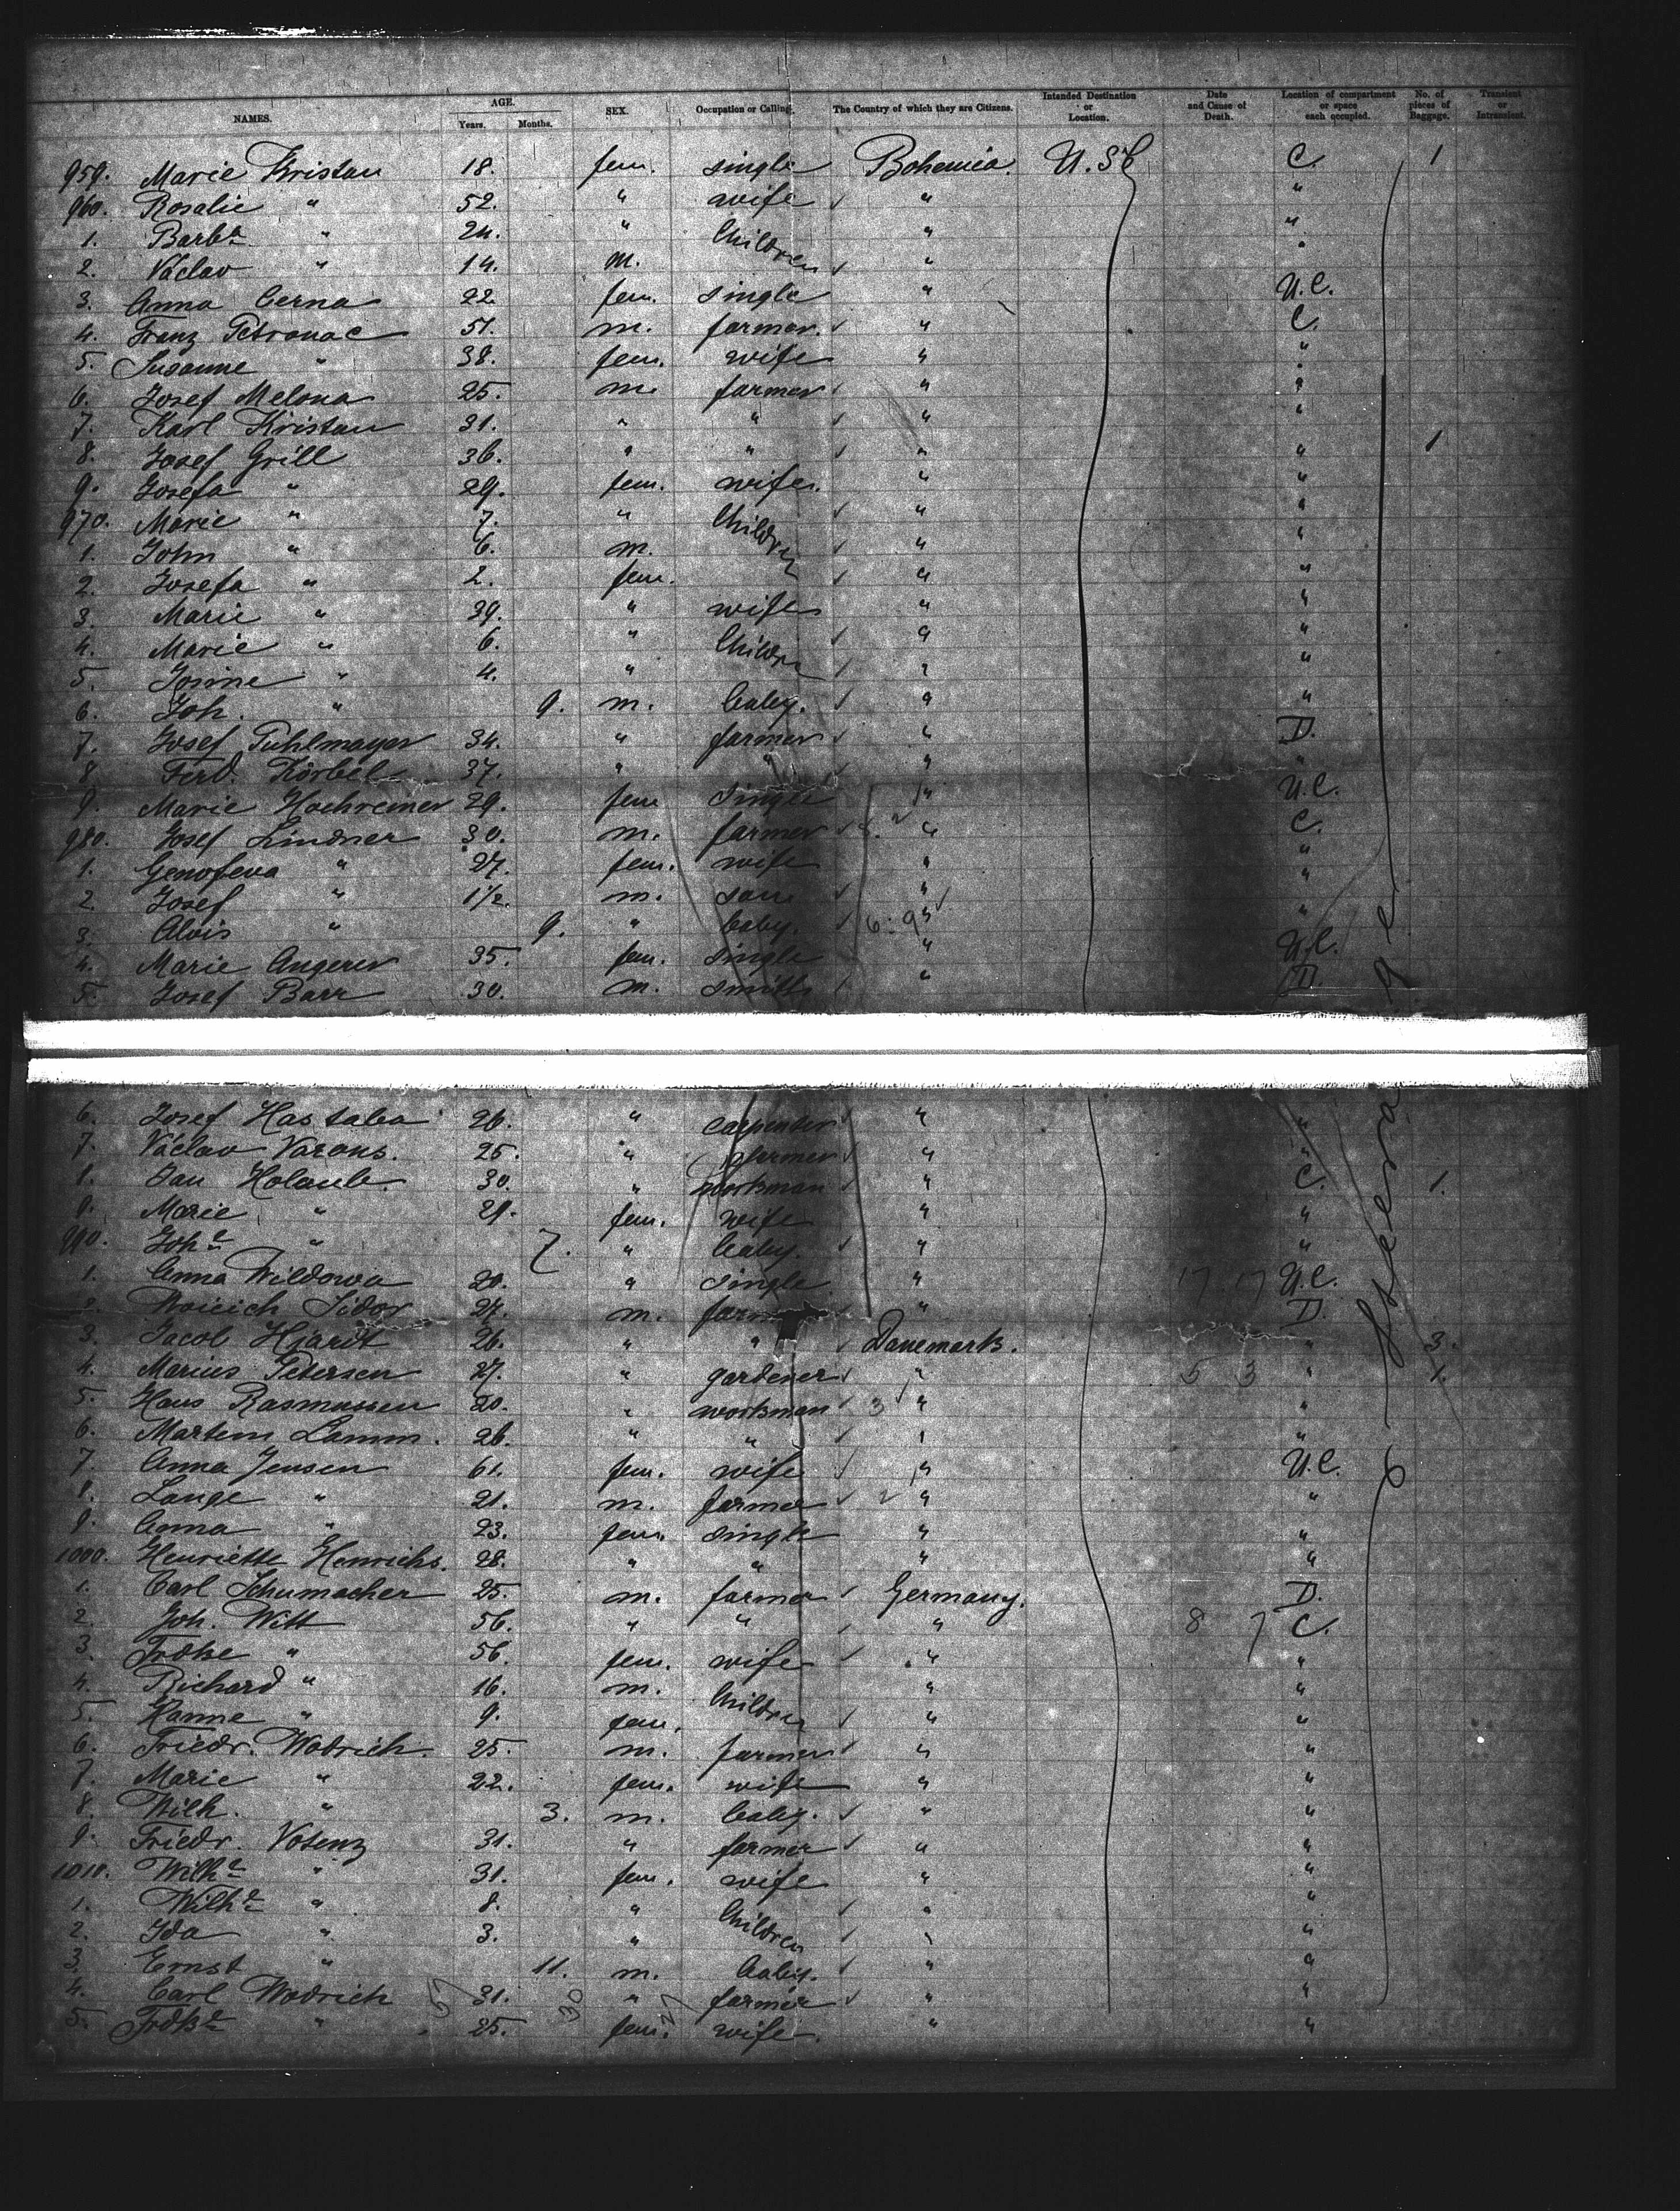 NAMES. AGE. Years. Months. SEX. Occupation or Calling. The Country of which they are Citizens. Intended Destination or Location. Date and Cause of Death. Location of compartment or space each occupied. No. of pieces of Baggage. Transient or Intransient.
959. Marie Kristan 18. fem. single Bohemia. U.S. C. 1
960. Rosalie " 52. " wife " "
1. Barba " 24. " Children " "
2. Václav " 14. m. " "
3. Anna Cerna 22. fem. single " U.C.
4. Franz Petronac 51. m. farmer. " C.
5. Susanne " 38. fem. wife " "
6. Josef Melona 25. m. farmer " "
7. Karl Kristan 31. " " " "
8. Josef Grill 36. " " " " 1
9. Josefa " 29. fem. wife. " "
970. Marie " 7. " Children " "
1. John " 6. m. " "
2. Josefa " 2. fem. " "
3. Marie " 39. " wife " "
4. Marie " 6. " Children " "
5. " 4. " " "
6. Joh. " 9. m. baby. " "
7. Josef Puhlmayer 34. " farmer " D.
8. Ferd. Körbel 37. " " " "
9. Marie Hochremer 29. fem single " U.C.
980. Josef Lindner 30. m. farmer " C.
1. Genofeva " 27. fem. wife " "
2. Josef " 1 1/2. m. son " "
3. Alois " 9. " baby. " "
4. Marie Angerer 35. fem. single " U.C.
5. Josef Barr 30. m. smith " D.
6. Josef Hastaba 26. " carpenter " "
7. Václav Varous. 25. " farmer " "
Jan Holaub. 30. " workman " C. 1.
9. Marie " 29. fem. wife " "
990. Joha " 7. " baby. " "
1. Anna Wildowa 20. " single " U.C.
2. Woicich Sidor 27. m. farm " D.
3. Jacob Hjardt 26. " " Danemark. " 3.
4. Marius Petersen 27. " gardener " 5 3 " 1.
5. Hans Rasmussen 20. " workman " "
6. Martem Lamm. 26. " " " "
7. Anna Jensen 61. fem. wife " U.C.
Lauge " 21. m. farmer " "
9. Anna " 23. fem. single " "
1000. Henriette Henrichs. 28. " " " "
1. Carl Schumacher 25. m. farmer Germany. D.
2. Joh. Witt 56. " " " 8 7 C.
3. Frdke " 56. fem. wife " "
4. Richard " 16. m. Children " "
5. Hanne " 9. fem. " "
6. Friedr. Wodrich. 25. m. farmer " "
7. Marie " 22. fem. wife " "
8. Wilh. " 3. m. baby. " "
9. Friedr. Votenz 31. " farmer " "
1010. Wilhe " 31. fem. wife " "
1. Wilhe " 8. " Children " "
2. Ida " 3. " " "
3. Ernst " 11. m. baby. " "
4. Carl Wodrich 31. " farmer " "
5. Frdke " 25. fem. wife. " "
Steerage